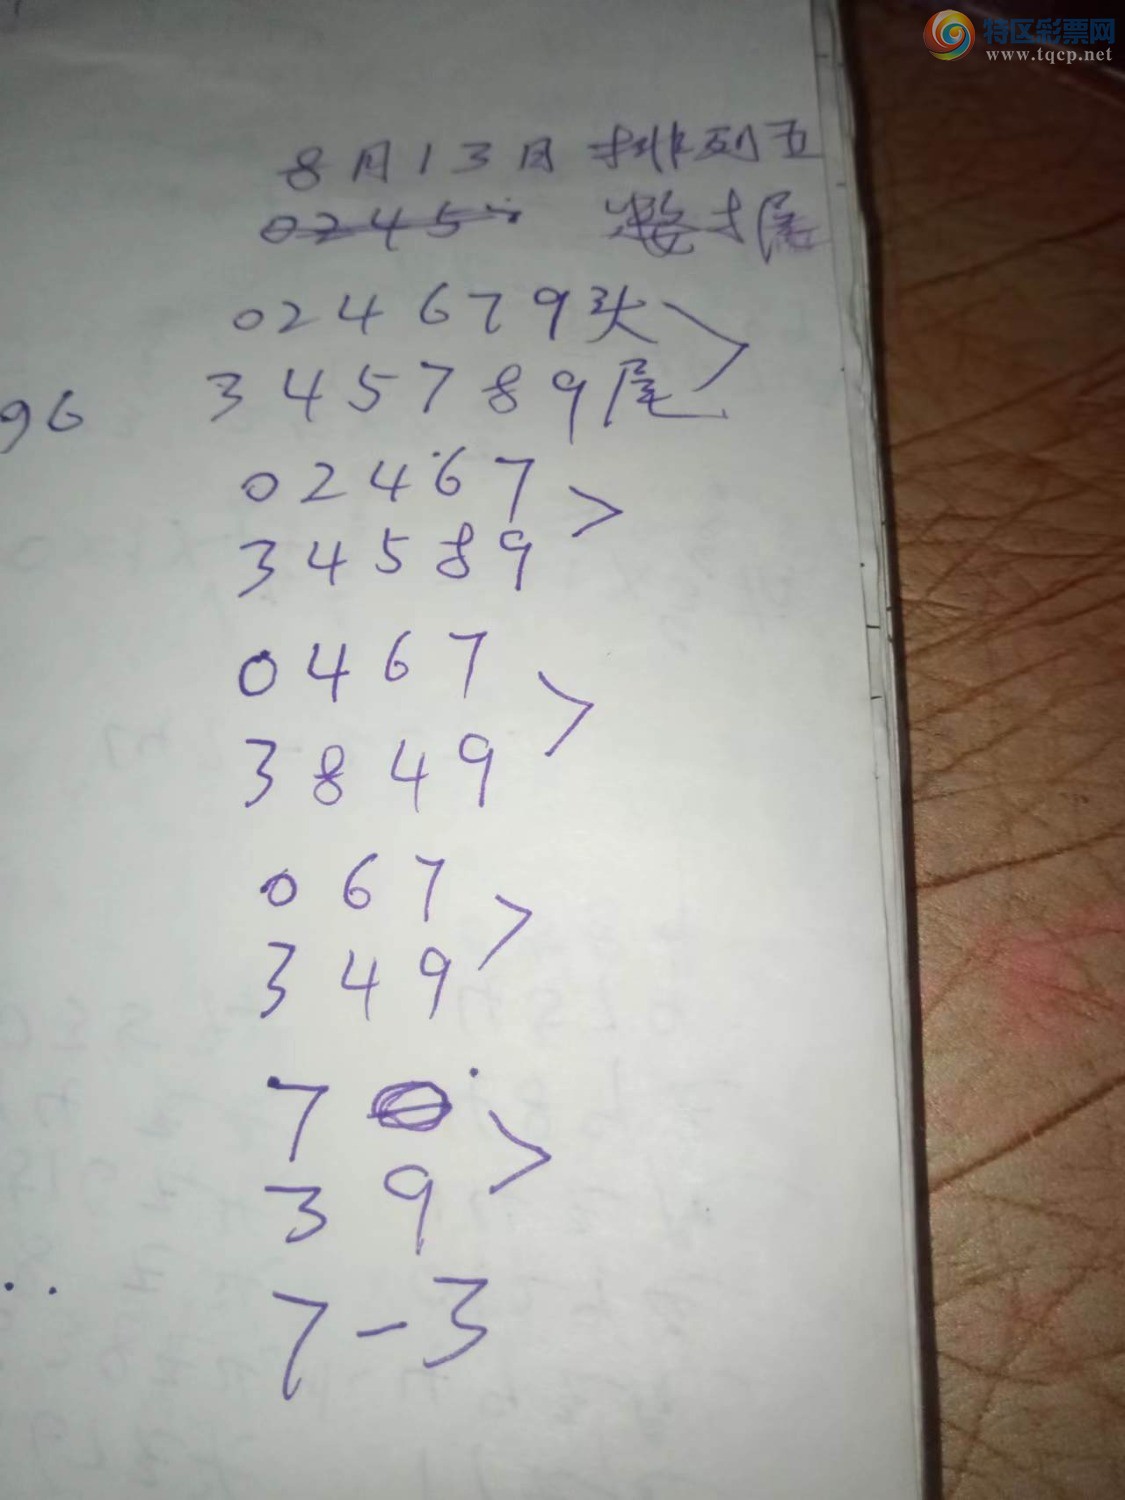 特区彩票网
www.tqcp.net
8月13日 排列五
0245
024679头
96
345789尾
02467
34589
0467
3849
067
349
7
39
7-3